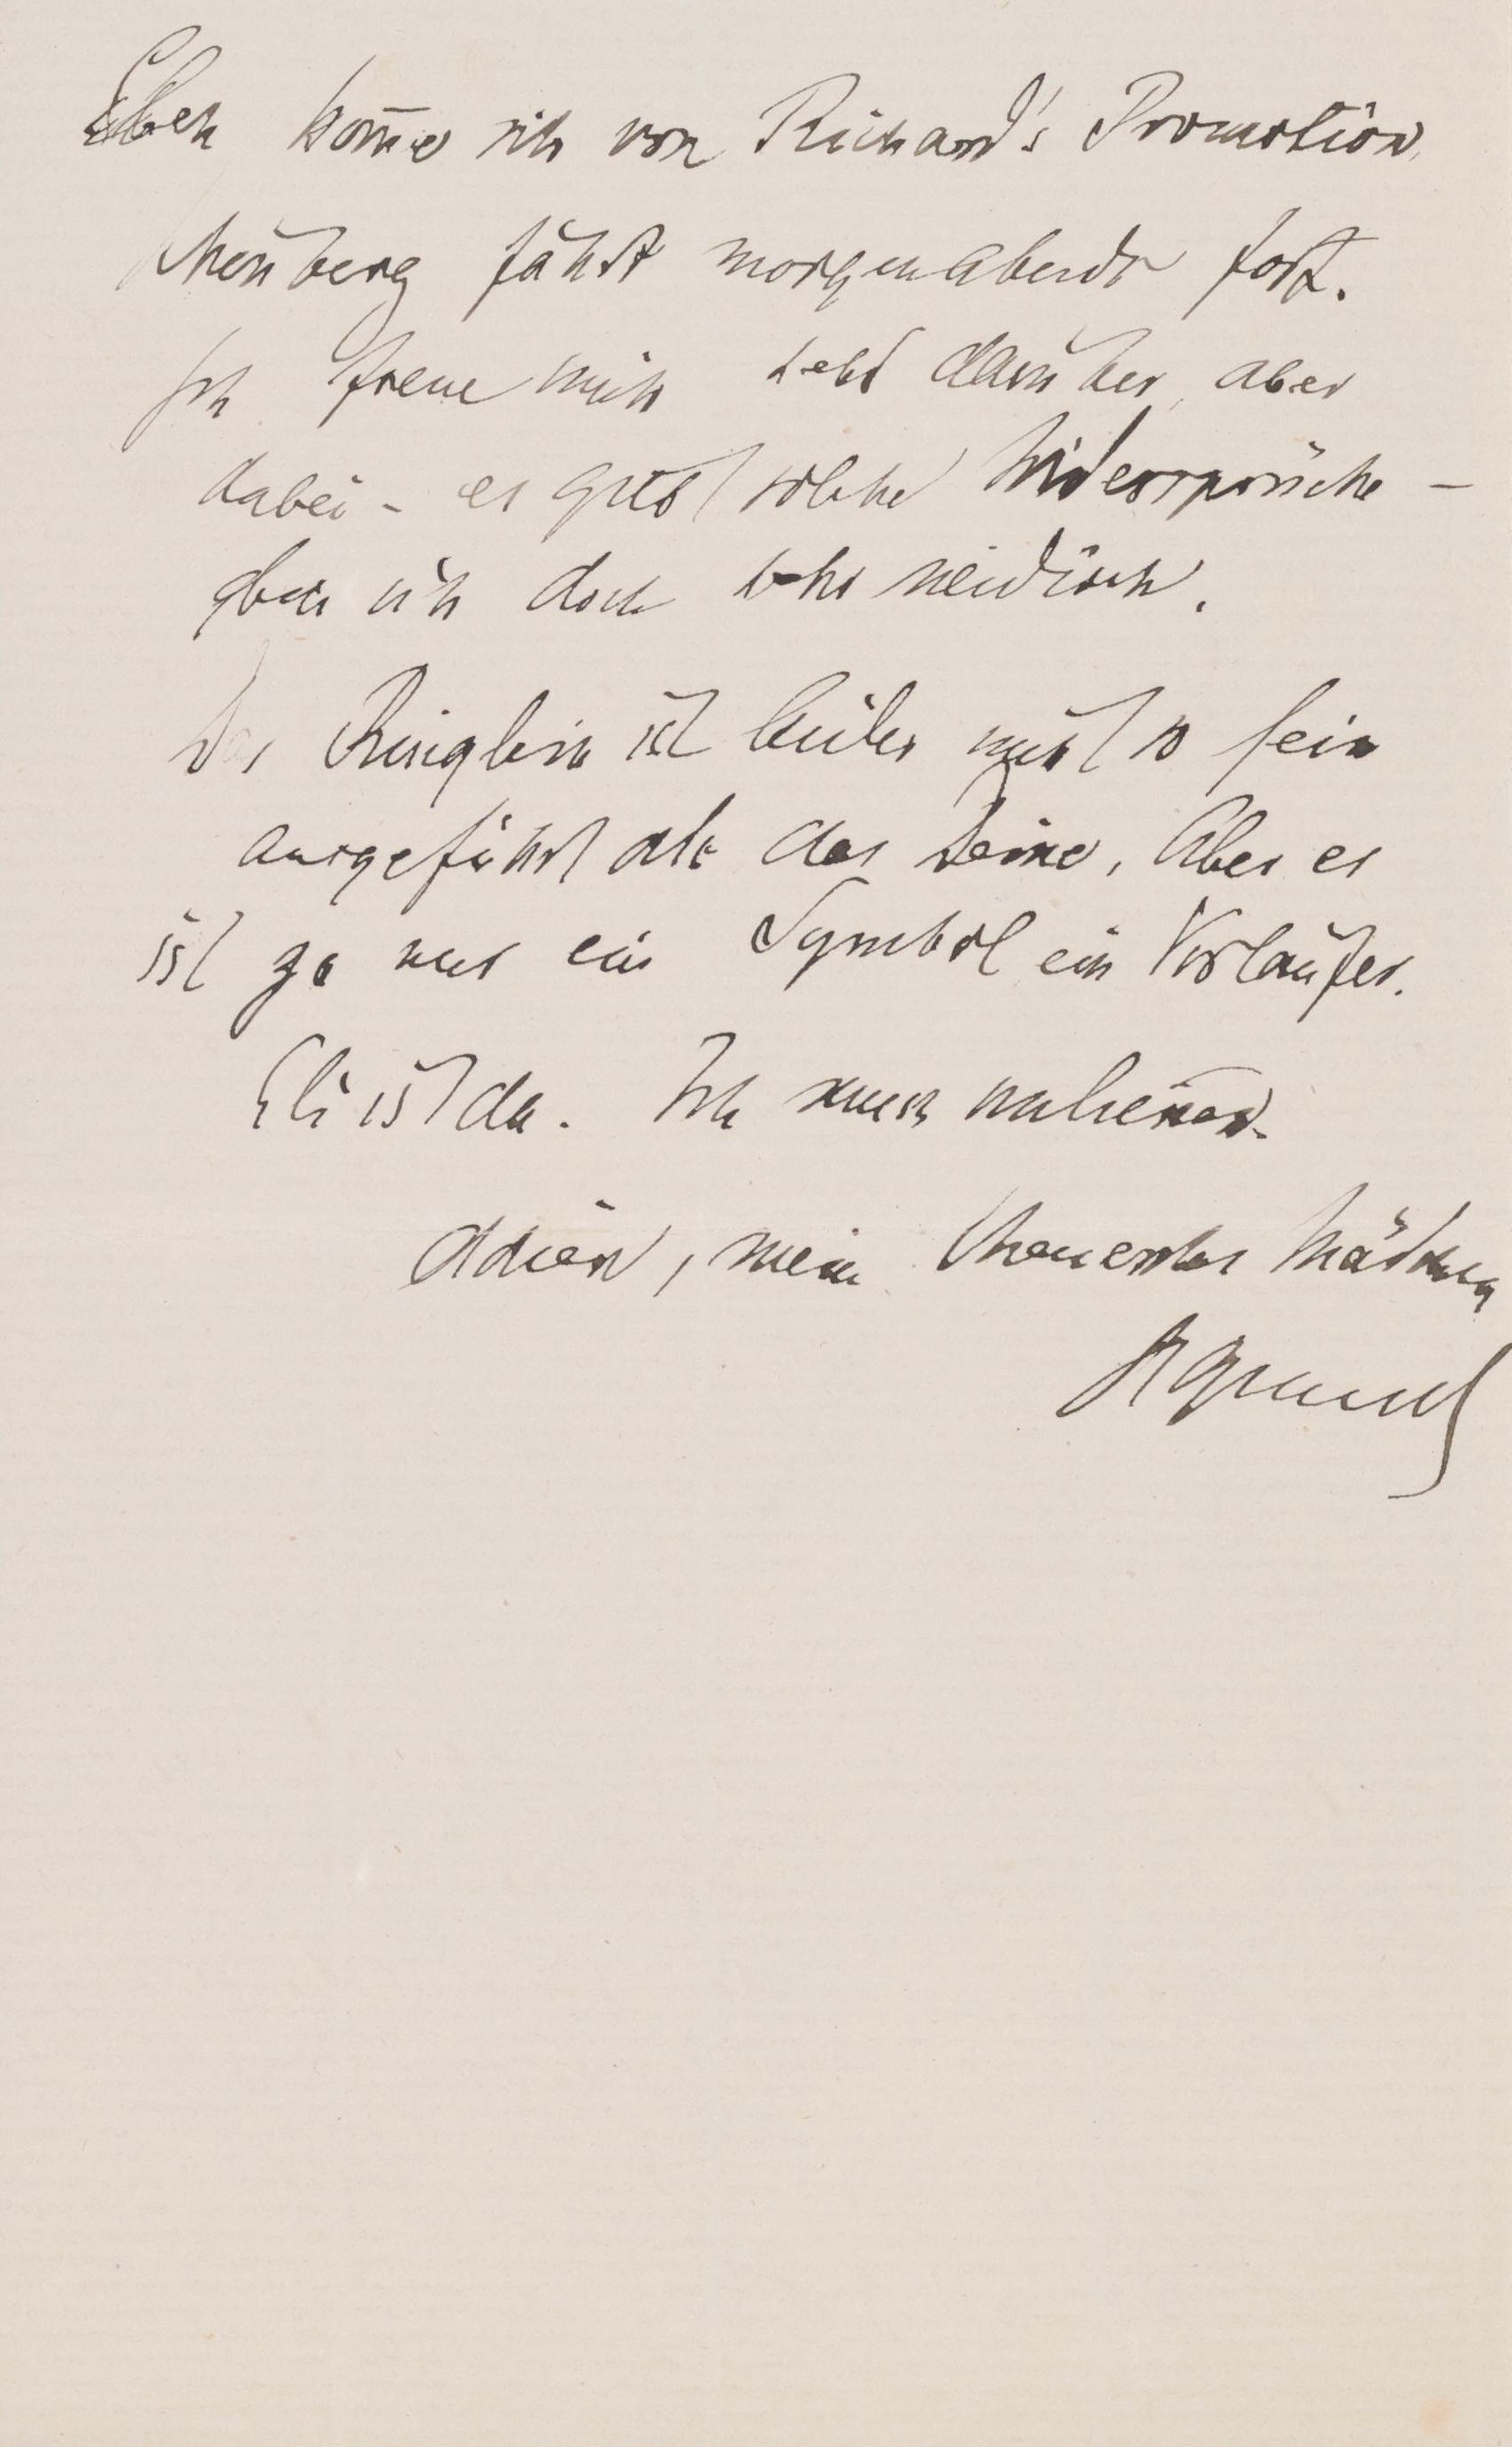 Eben kom̄e ich von Richard's Promotion.
Schönberg fährt morgen abends fort.
Ich freue mich sehr darüber, aber
dabei – es gibt solche Widersprüche –
bin ich doch sehr neidisch.
Das Ringlein ist leider nicht so fein
ausgeführt als das Deine. Aber es
ist ja nur ein Symbol ein Vorläufer.
Eli ist da. Ich muss
Adieu, mein theuerstes Mädchen
Sigmund